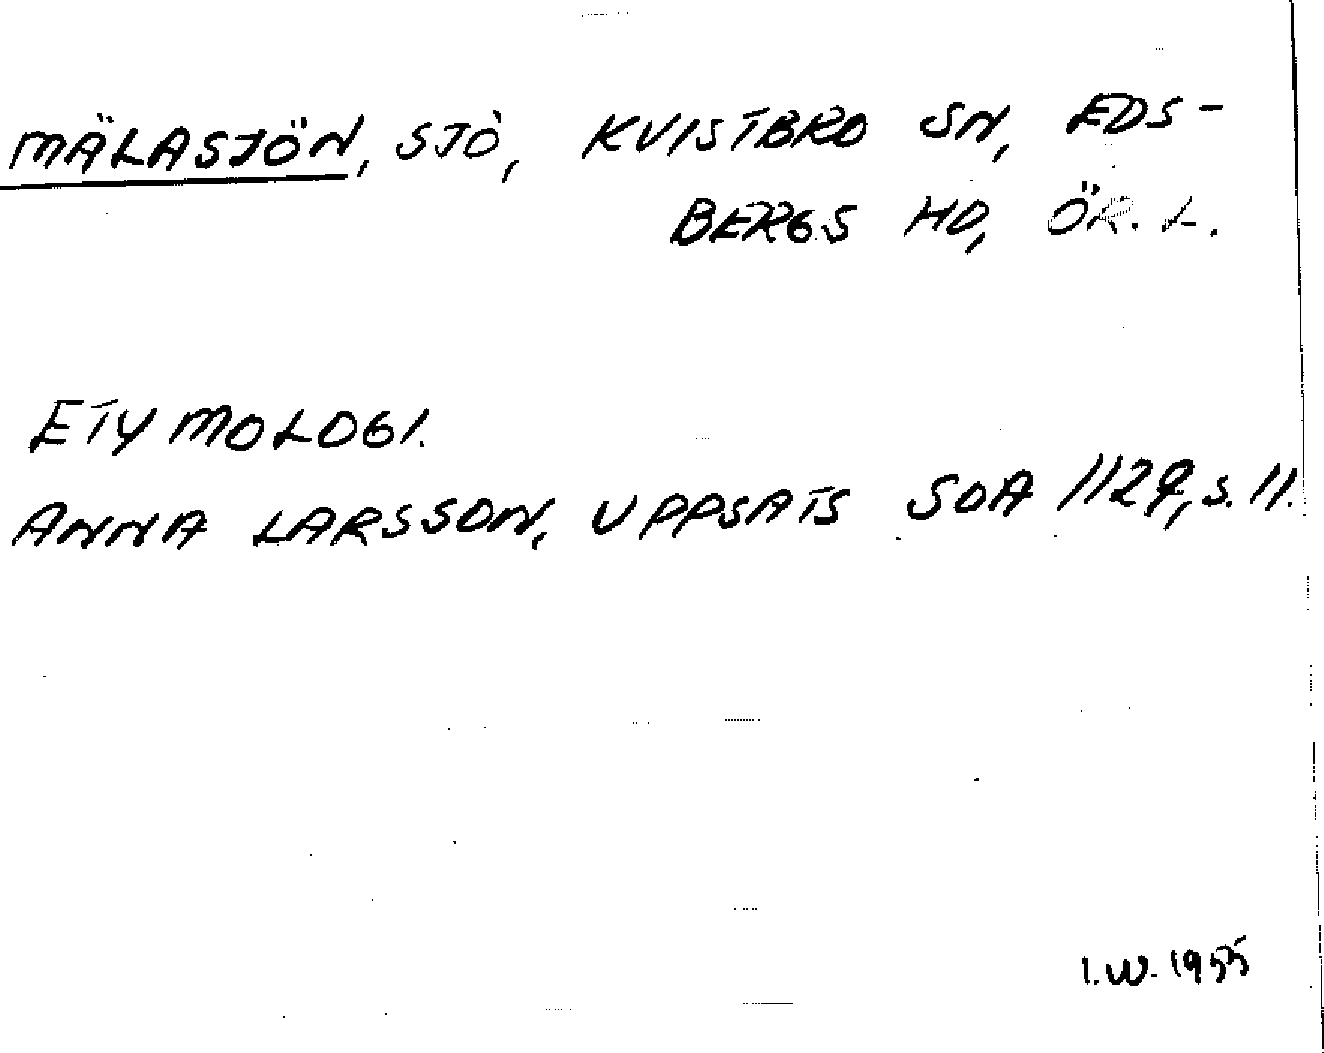 MÄLASJÖN, SJÖ, KVISTBRO SN, EDS-
BERGS HD, ÖR. L.
ETYMOLOGI.
ANNA LARSSON, UPPSATS SOA 1129, S. 11.
I.W. 1955